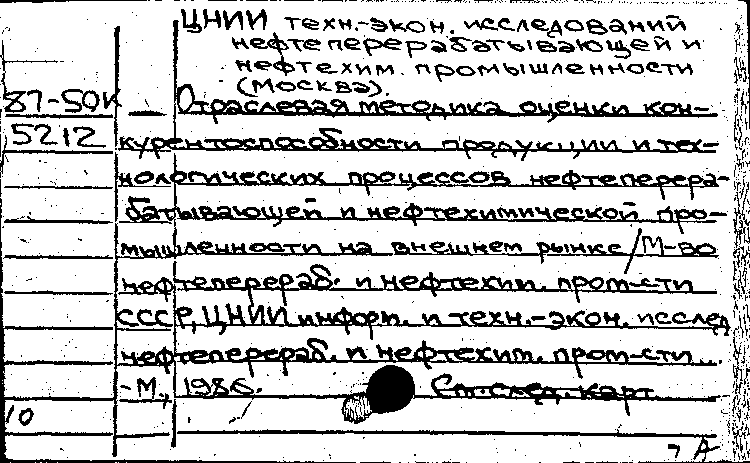 ЦНИИ техн.-экон. исследований
нефтеперерабатывающей и
нефтехим. промышленности
(Москва).
87-50К
5212
Отраслевая методика оценки кон-
курентоспособности продукции и тех-
нологических процессов нефтеперера-
батывающей и нефтехимической про-
мышленности на внешнем рынке/М-во
нефтеперераб. и нефтехим. пром-сти
СССР, ЦНИИ информ. и техн.-экон. исслед.
нефтеперераб. и нефтехим. пром-сти...
-М., 1986.
См. след. карт.
10